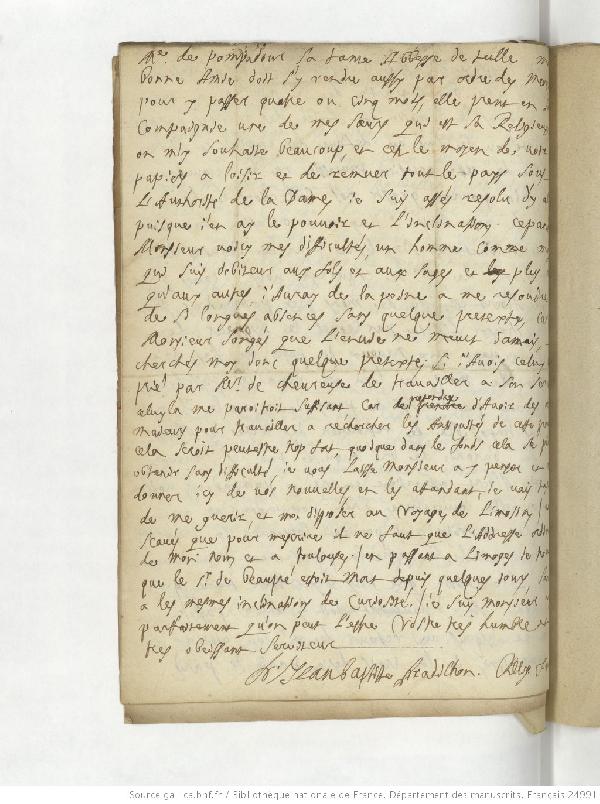 Me. de pompadour sa tante Abbesse de tulle m
bonne Amie doit s'y rendre aussy par ordre des mede
pour y passer quatre ou cinq mois, elle prent en s
Compagnie une de mes sœurs qui est sa Religieuse
on m'y souhaite beaucoup, et c'est le moyen de voir
papiers a loisir et de remuer tout le pays sous
L'Authorité de la Dame, ie suis assés resolu d'y al
puisque i'en ay le pouvoir et L'inclination. cepan
Monsieur voicy mes difficultés, un homme comme m
qui suis debiteur aux fols et aux sages et plus
qu'aux autres, i'auray de la peine a me resoudre
de si longues absences sans quelque pretexte, car
Monsieur songés que L'enuie ne meurt iamais,
cherchés moy donc quelque pretexte. si i'auois celuy
prié par Mr. de cheureuse de trauailler a son
celuy la me paroitroit suffisant car de prendre d'auoir des
pour trauailler a rechercher les Antiquités de cette pro
cela seroit peutestre trop fort, quoique dans le fonds cela se p
obtenir sans difficulté, ie vous laisse Monsieur a y penser et
donner icy de vos nouvelles et les attandant, ie vais
de me guerir, et me disposer au Voyage de Limosin
scaués que pour m'escrire il ne faut que L'Addresse ordin
de mon nom et a Toulouse. en passant a Limoges ie
que le sr. de Beaupré estoit mort depuis quelques iours
a les mesmes inclinations de curiosité. ie suis monsieur
parfaitement qu'on peut L'estre Vostre tres humble et
tres obeissant seruiteur
fr. Jean baptiste Pradilhon. Relig.